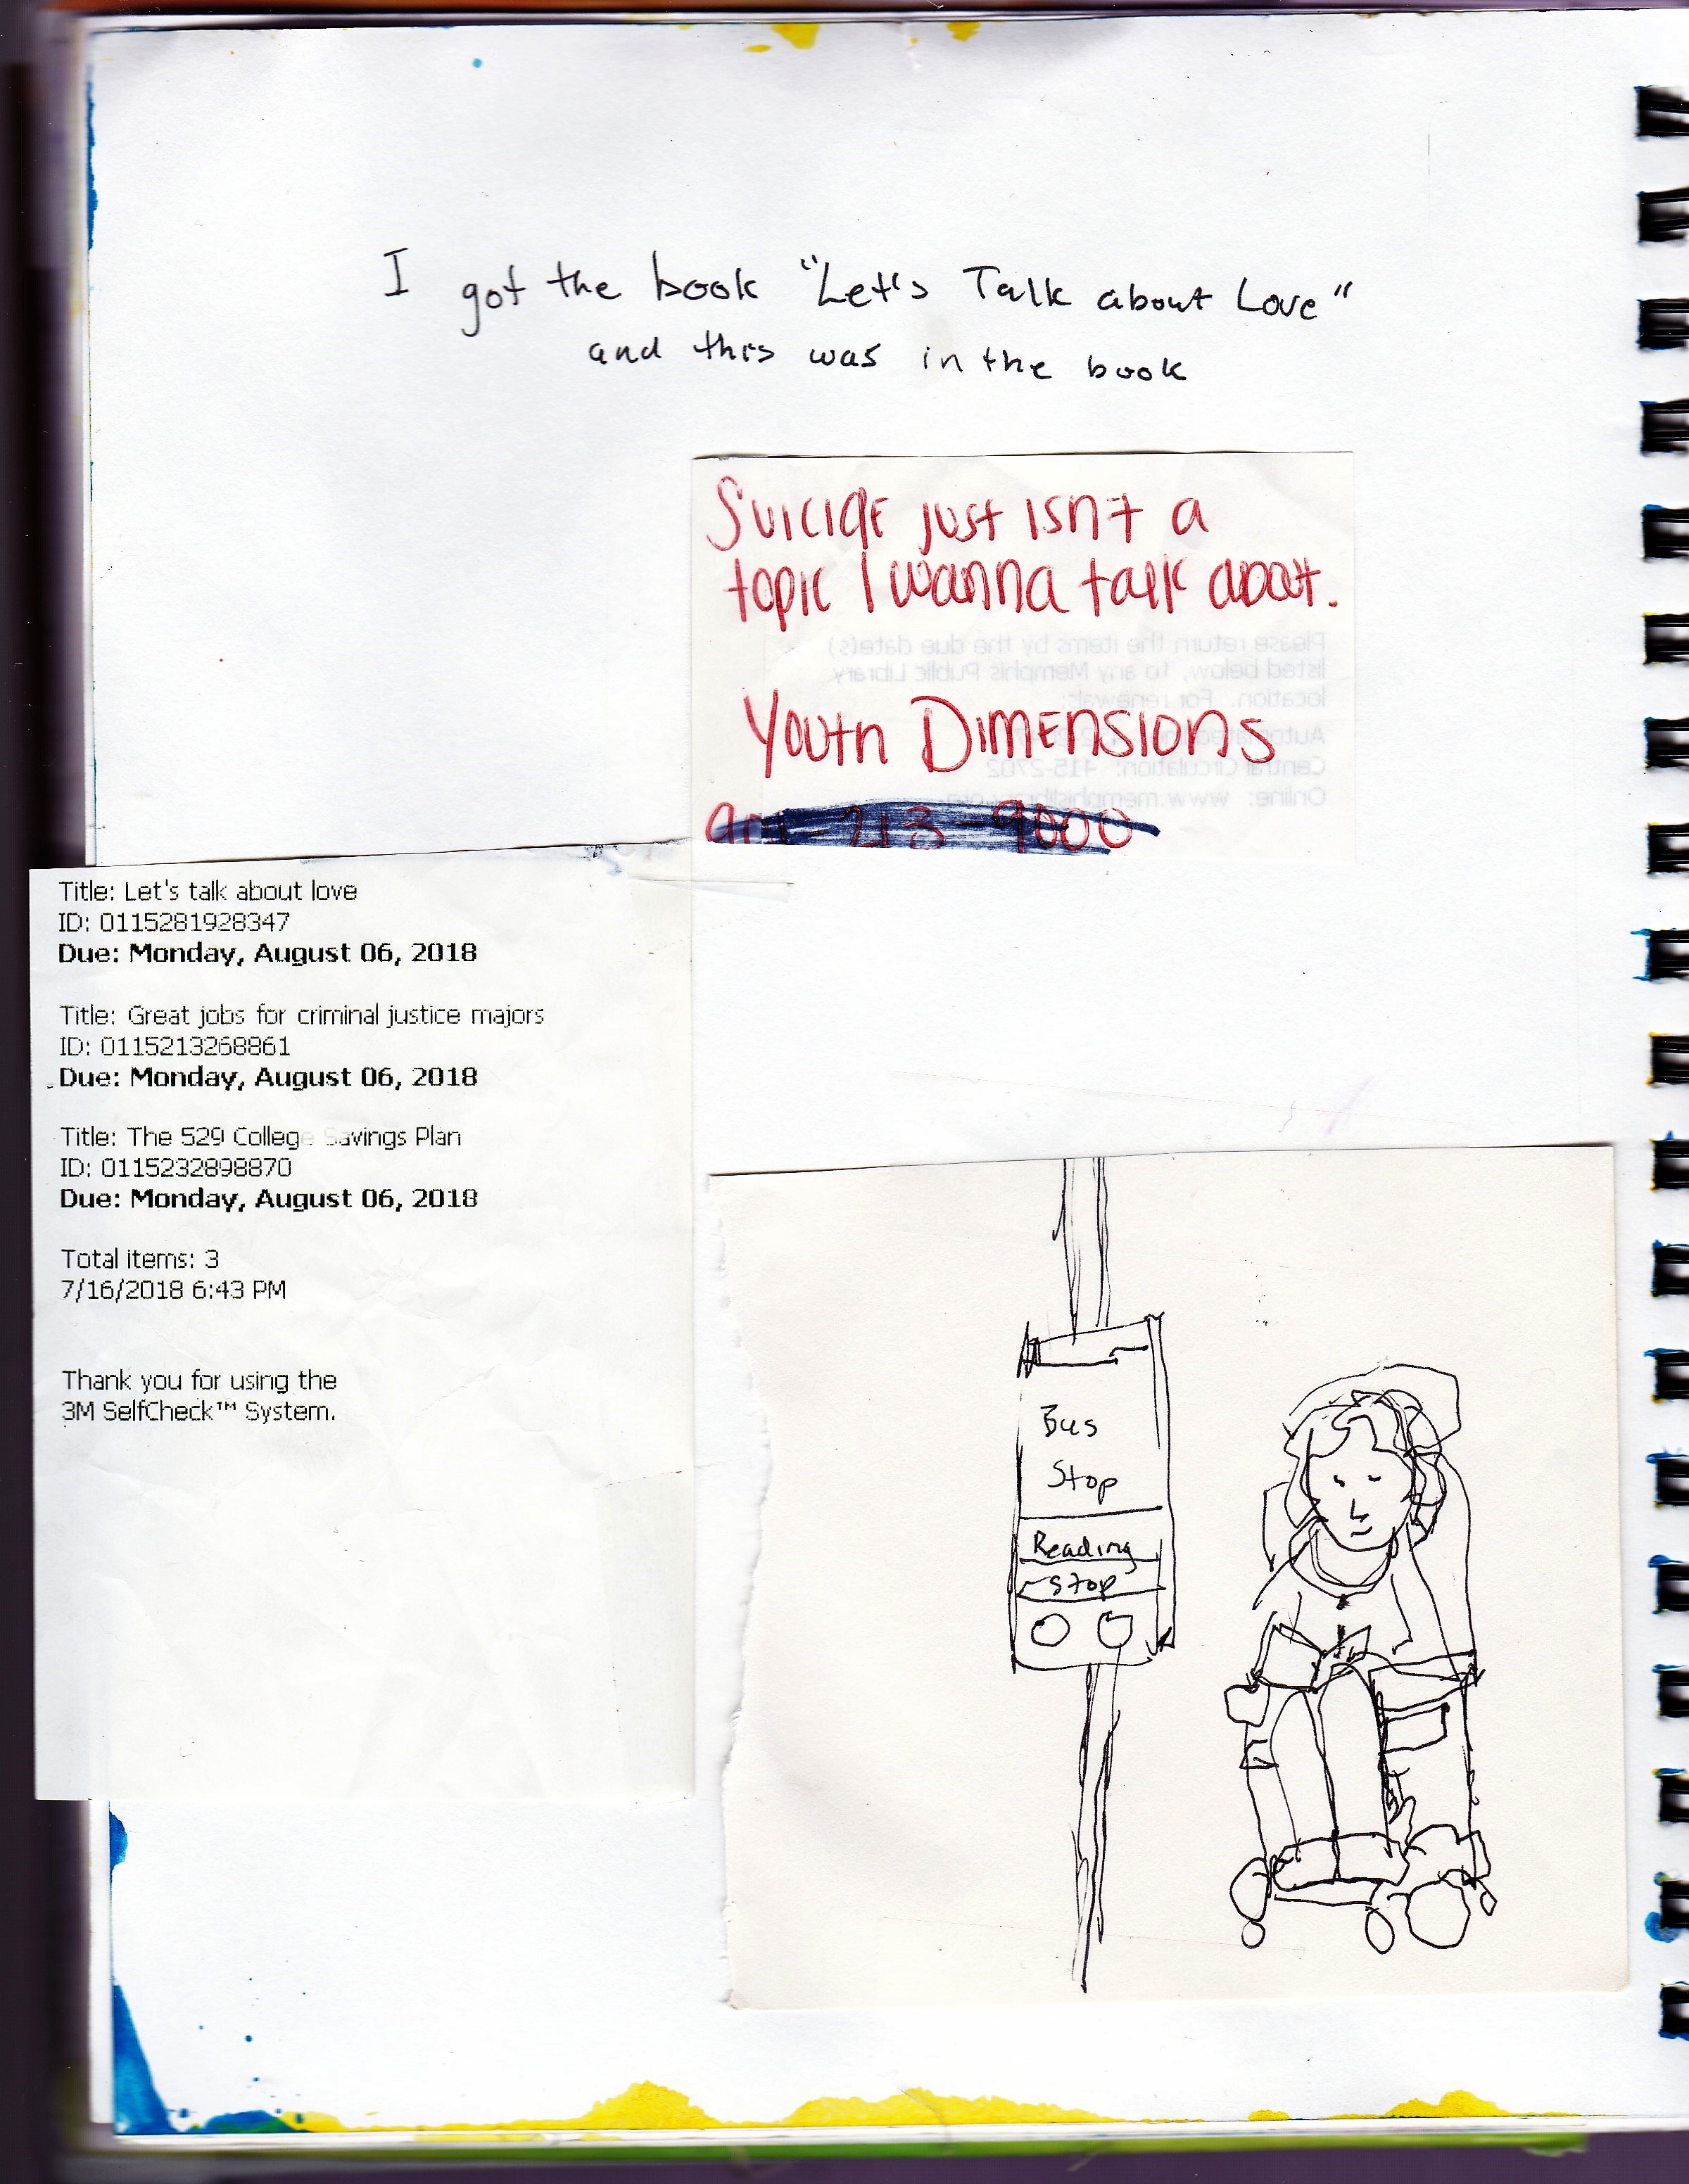 I got the book "Let's Talk about Love"
and this was in the book
Suicide just isn't a
topic I wanna talk about.
Please return the items by the due date(s)
listed below, to any Memphis Public Library
location. For renewals:
Youth Dimensions
Central Circulation: 415-2702
Online: www.memphislibrary.org
Title: Let's talk about love
ID: 0115281928347
Due: Monday, August 06, 2018
Title: Great jobs for criminal justice majors
ID: 0115213268861
Due: Monday, August 06, 2018
Title: The 529 College Savings Plan
ID: 0115232898870
Due: Monday, August 06, 2018
Total items: 3
7/16/2018 6:43 PM
Thank you for using the
3M SelfCheck™ System.
Bus
Stop
Reading
Stop